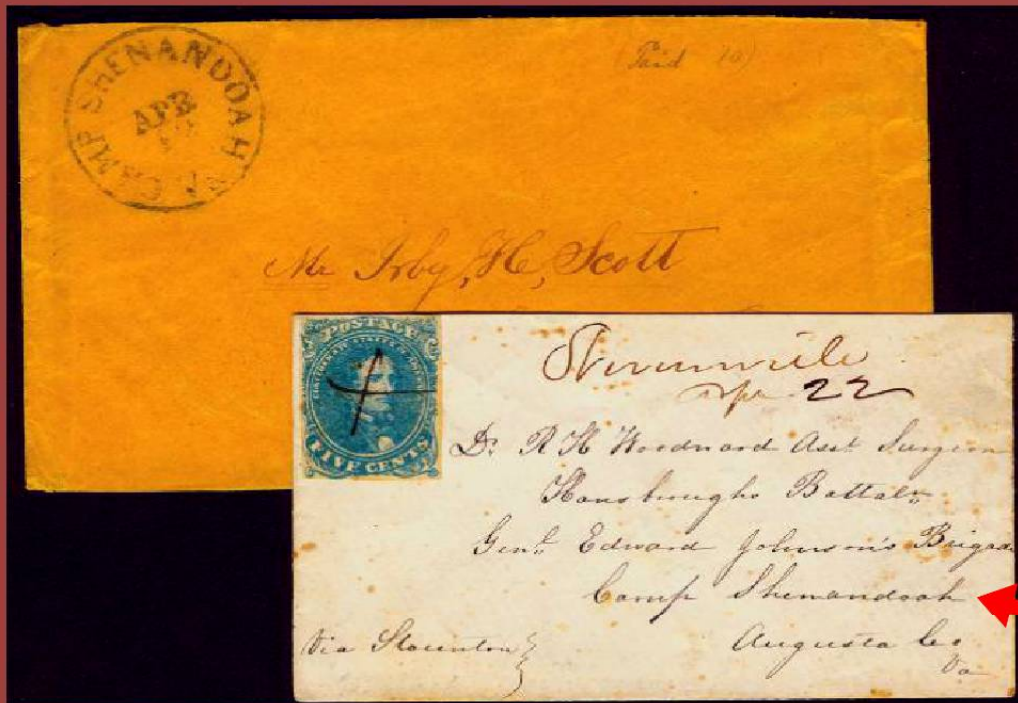 CAMP SHENANDOAH VA.
APR
(Paid 10)
Mr Irby, H, Scott
POSTAGE
CONFEDERATE STATES OF AMERICA
FIVE CENTS
Apr 22
Dr R H Woodward Asst Surgeon
Hansbroughs Battaln
Genl Edward Johnson's Brigade
Camp Shenandoah
Augusta Co
Va
Via Staunton